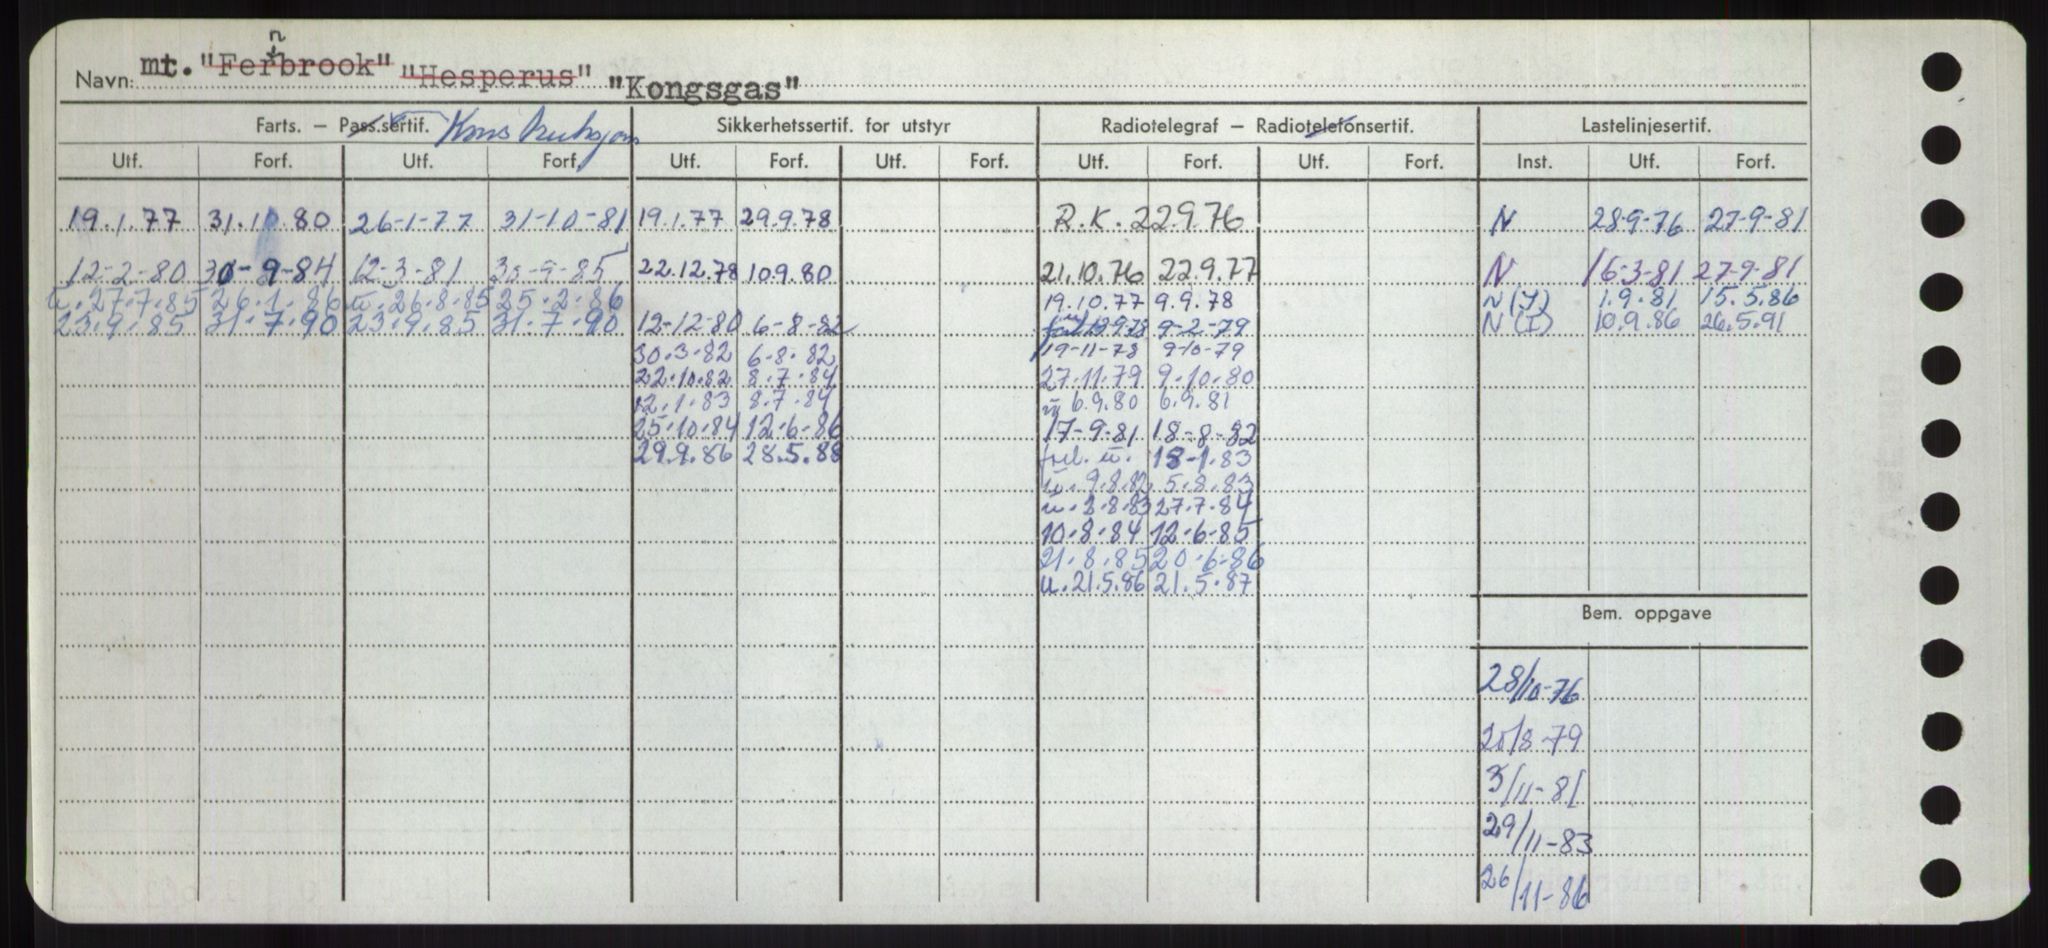 Navn: mt. "Fernbrook" "Hesperus" "Kongsgas"
Farts. – Pass.sertif. Konstruksjon Sikkerhetssertif. for utstyr Radiotelegraf – Radiotelefonsertif. Lastelinjesertif.
Utf. Forf. Utf. Forf. Utf. Forf. Utf. Forf. Utf. Forf. Utf. Forf. Inst. Utf. Forf.
19.1.77 31.10.80 26-1-77 31-10-81 19.1.77 29.9.78 R.K. 22.9.76 N 28-9-76 27-9-81
12-2-80 30-9-84 12-3-81 30-9-85 22.12.78 10.9.80 21.10.76 22.9.77 N 16-3-81 27-9-81
u.27.7.85 26.1.86 u.26.8.85 25.2.86 19.10.77 9.9.78 N(I) 1.9.81 15.5.86
23.9.85 31.7.90 23.9.85 31.7.90 12-12-80 6-8-82 9-2-79 N(I) 10.9.86 26.5.91
30.3.82 6.8.82 19-11-78 9-10-79
22.10.82 8.7.84 27.11.79 9.10.80
12.1.83 8.7.84 6.9.80 6.9.81
25.10.84 12.6.86 17-9-81 18-8-82
29.9.86 28.5.88 forl. u. 18-1.83
u. 9.8.82 5.8.83
u. 2.8.83 27.7.84
10.8.84 12.6.85
21.8.85 20.6.86
u.21.5.86 21.5.87
Bem. oppgave
28/10-76
20/8-79
3/11-81
29/11-83
26/11-86